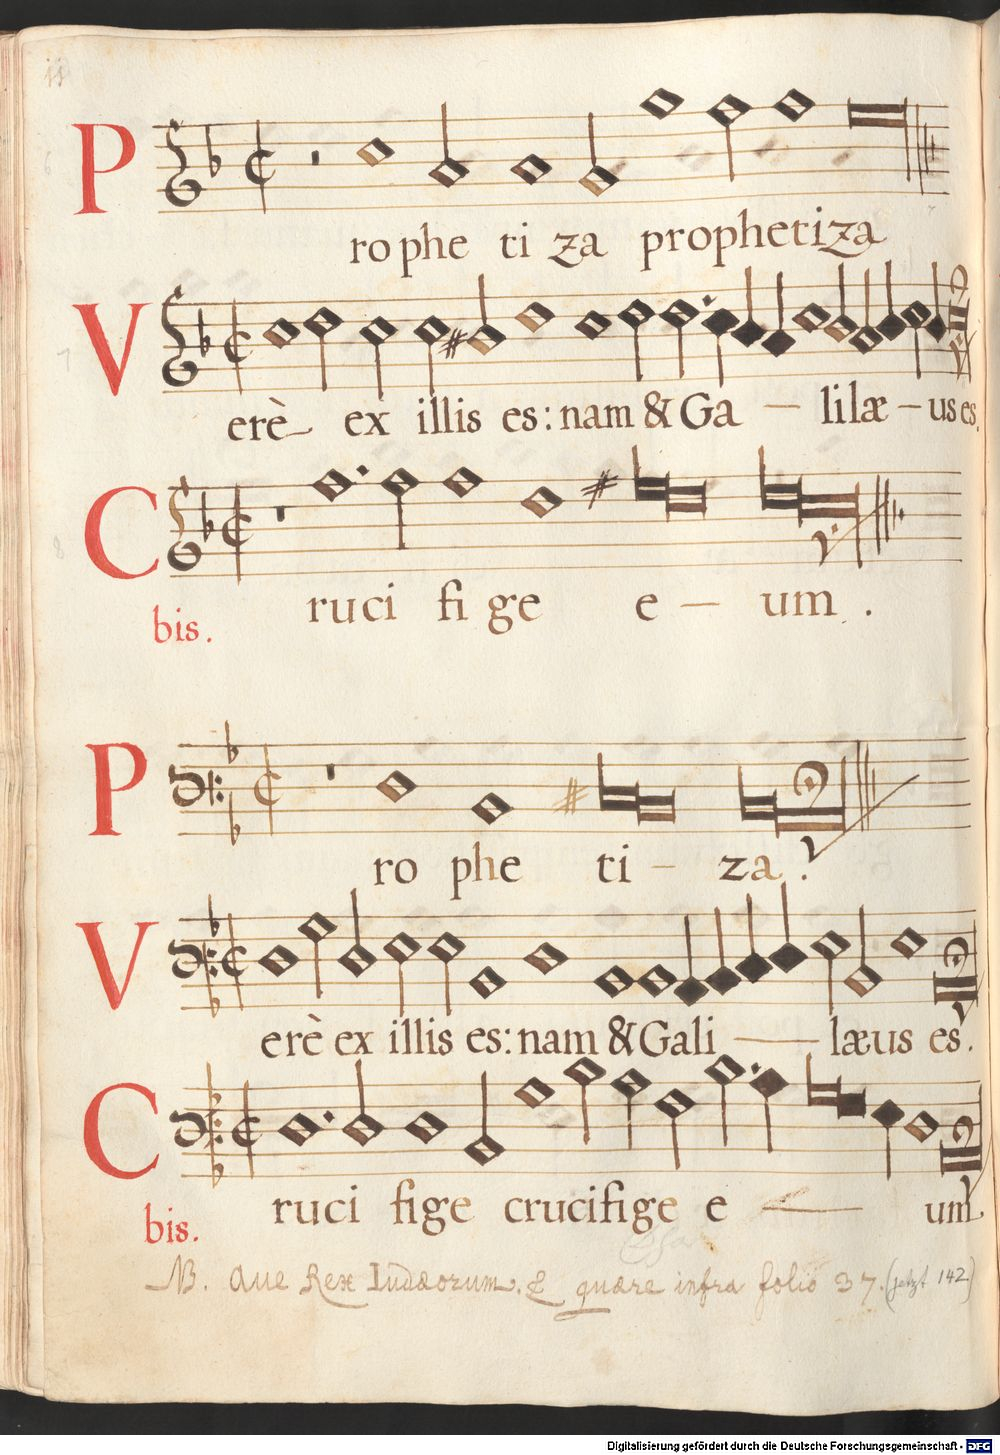 11
6
Prophetiza prophetiza
7
Verè ex illis es: nam & Ga – lilæ – us es.
8
Crucifige e – um.
bis.
Prophe ti – za.
Verè ex illis es: nam & Gali — læus es.
Crucifige crucifige e — um
bis.
NB. Aue Rex Iudæorum. & quære infra folio 37. (jetzt 142)
Digitalisierung gefördert durch die Deutsche Forschungsgemeinschaft - DFG